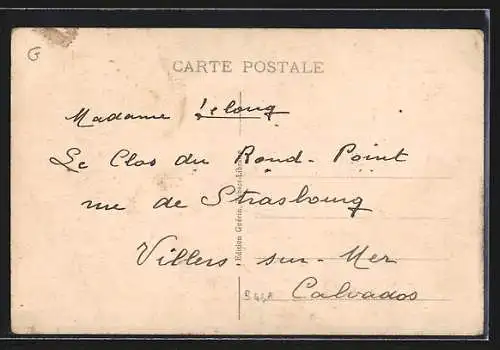 G
CARTE POSTALE
Madame Lelong
Le Clos du Rond-Point
rue de Strasbourg
Villers-sur-Mer
Calvados
Edition Guérin,